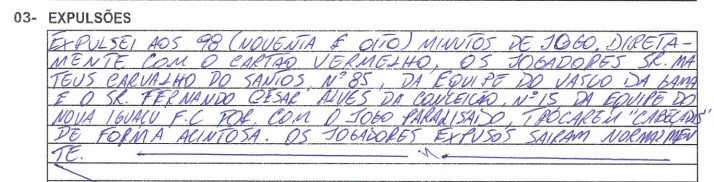 03- EXPULSÕES
EXPULSEI AOS 98 (NOVENTA E OITO) MINUTOS DE JOGO, DIRETA-
MENTE COM O CARTÃO VERMELHO, OS JOGADORES SR. MA
TEUS CARVALHO DO SANTOS, Nº 85, DA EQUIPE DO VASCO DA GAMA
E O SR. FERNANDO CESAR ALVES DA CONCEICÃO, Nº 15, DA EQUIPE DO
NOVA IGUAÇU F.C POR, COM O JOGO PARALISADO, TROCAREM "CABEÇADAS"
DE FORMA ACINTOSA. OS JOGADORES EXPUSOS SAIRAM NORMALMEN
TE.